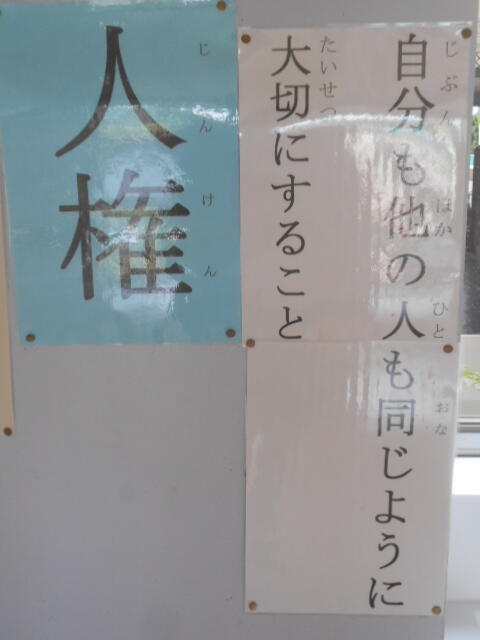 自分も他の人も同じように
じぶん ほか ひと おな
大切にすること
たいせつ
人権
じんけん